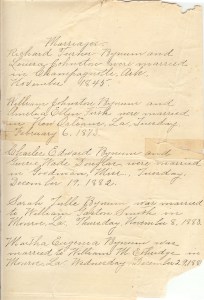 Marriages
Richard Bynum and
Louisa Johnston were married
in Champagnolle, Ark.
November 1845.
William Johnston Bynum and
Amelia Ellen Fisk were married
in New Orleans, La. Tuesday
February 6. 1872.
Charles Edward Bynum and
Wade Douglas were married
in Goodman, Miss. Tuesday,
December 19, 1882.
Sarah Tulle Bynum was married
to William Smith in
Monroe, La. Thursday November 8, 1883.
Martha Eugenia Bynum was
married to William M. in
Monroe, La. Wednesday December